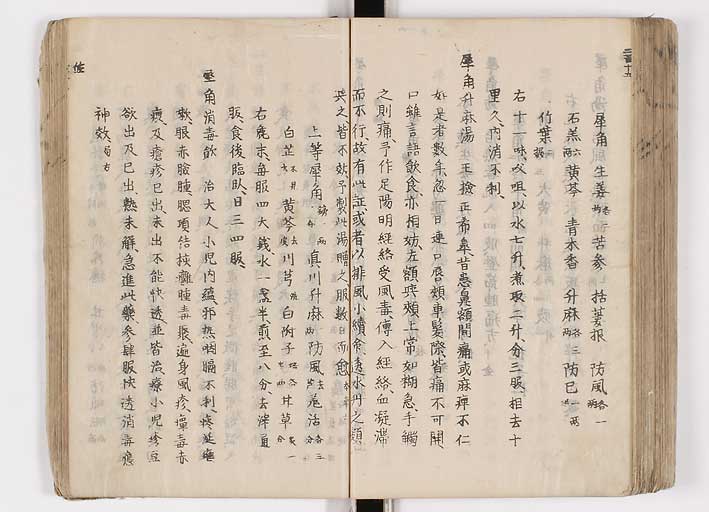 犀角湯 生姜 各一兩 苦參 括蔞根 防風 各一兩
石羔 六兩 黄芩 青木香 升麻 各三兩 防已 一兩
竹葉
右十一味㕮咀以水七升煮取二升分三服相去十
里久内消不利
犀角升麻湯 王檢正希皐昔患鼻額間痛或麻痺不仁
如是者數年忽一日連口唇頬車髮際皆痛不可開
口雖言語飲食亦相妨左額與頬上常如糊急手觸
之則痛予作足陽明經絡受風毒傳入經絡血凝滯
而不行故有此証或者以排風小續命透氷丹之類
與之皆不效予製此湯贈之服數日而愈
上等犀角 鎊一兩 真川升麻 防風 羗活 各三分
白芷 黄芩 川芎 白附子 甘草
右麁末每服四大錢水一盞半煎至八分去滓通
服食後臨臥日三四服
犀角消毒飲 治大人小児内蘊邪熱咽膈不利痰涎
嗽眼赤臉腫腮項結挾癰腫毒聚遍身風疹癉毒赤
瘼及瘡疹已出未出不能快透並皆治療小児疹豆
欲出及已出熱未解急進此藥參肆服快透消毒應
神效 局方